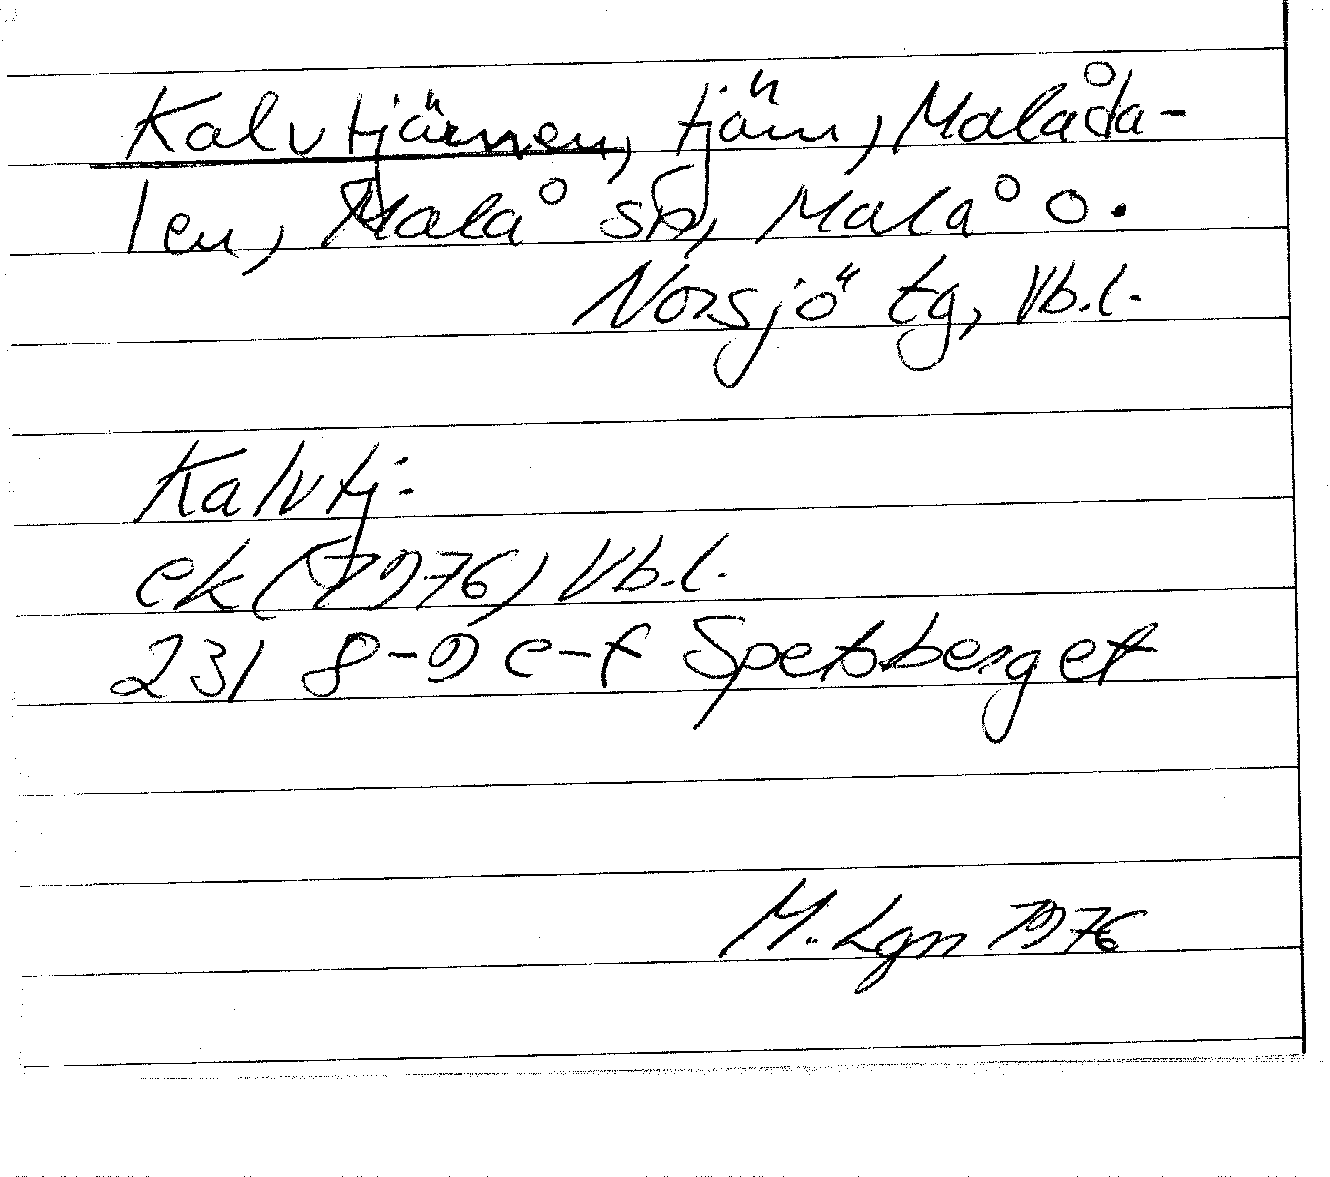 Kalvtjärnen, tjärn, Malåda-
len, Malå sn, Malå o.
Norsjö tg, Vb.l.
Kalvtj.
ek (1976) Vb.l.
231 8-9 e-f Spetsberget
M. Lgn 1976